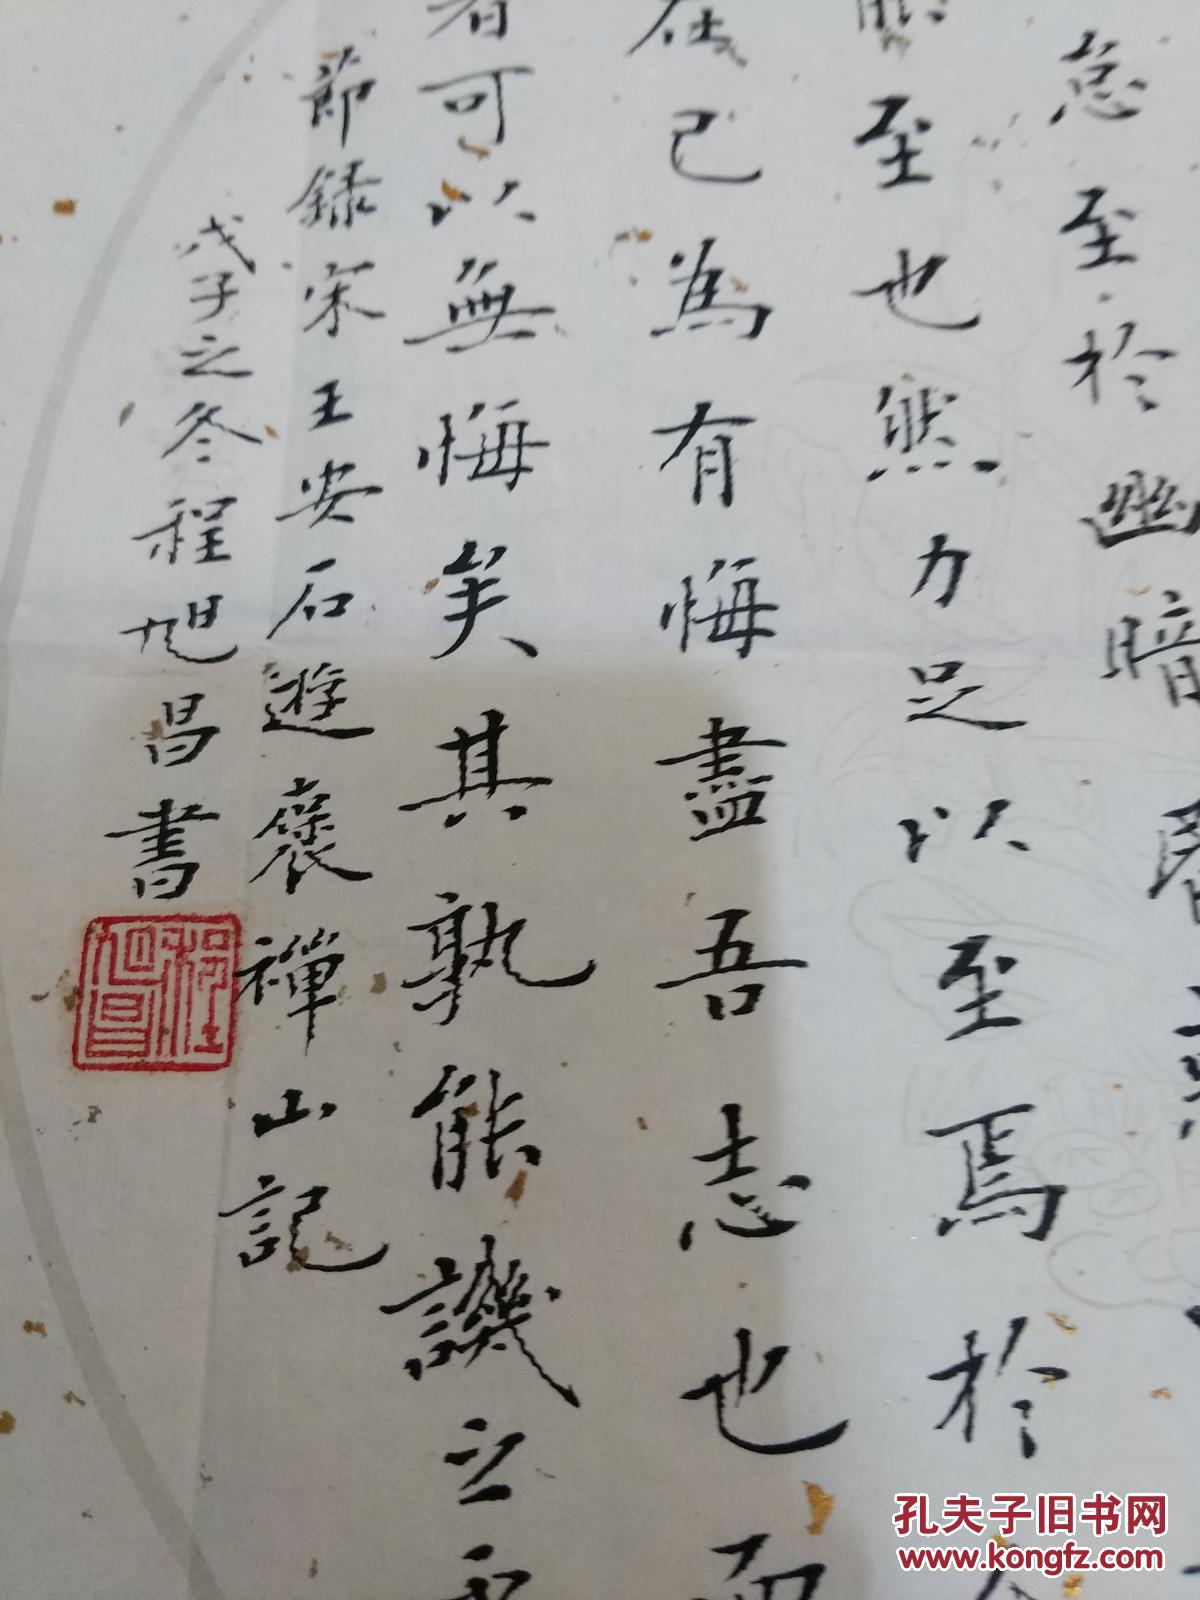 怠至於幽暗昏惑
至也然力足以至焉於
在己為有悔盡吾志也而
者可以無悔矣其孰能譏之乎
節録宋王安石遊褒禪山記
戊子之冬程旭昌書
程旭昌
孔夫子旧书网
www.kongfz.com